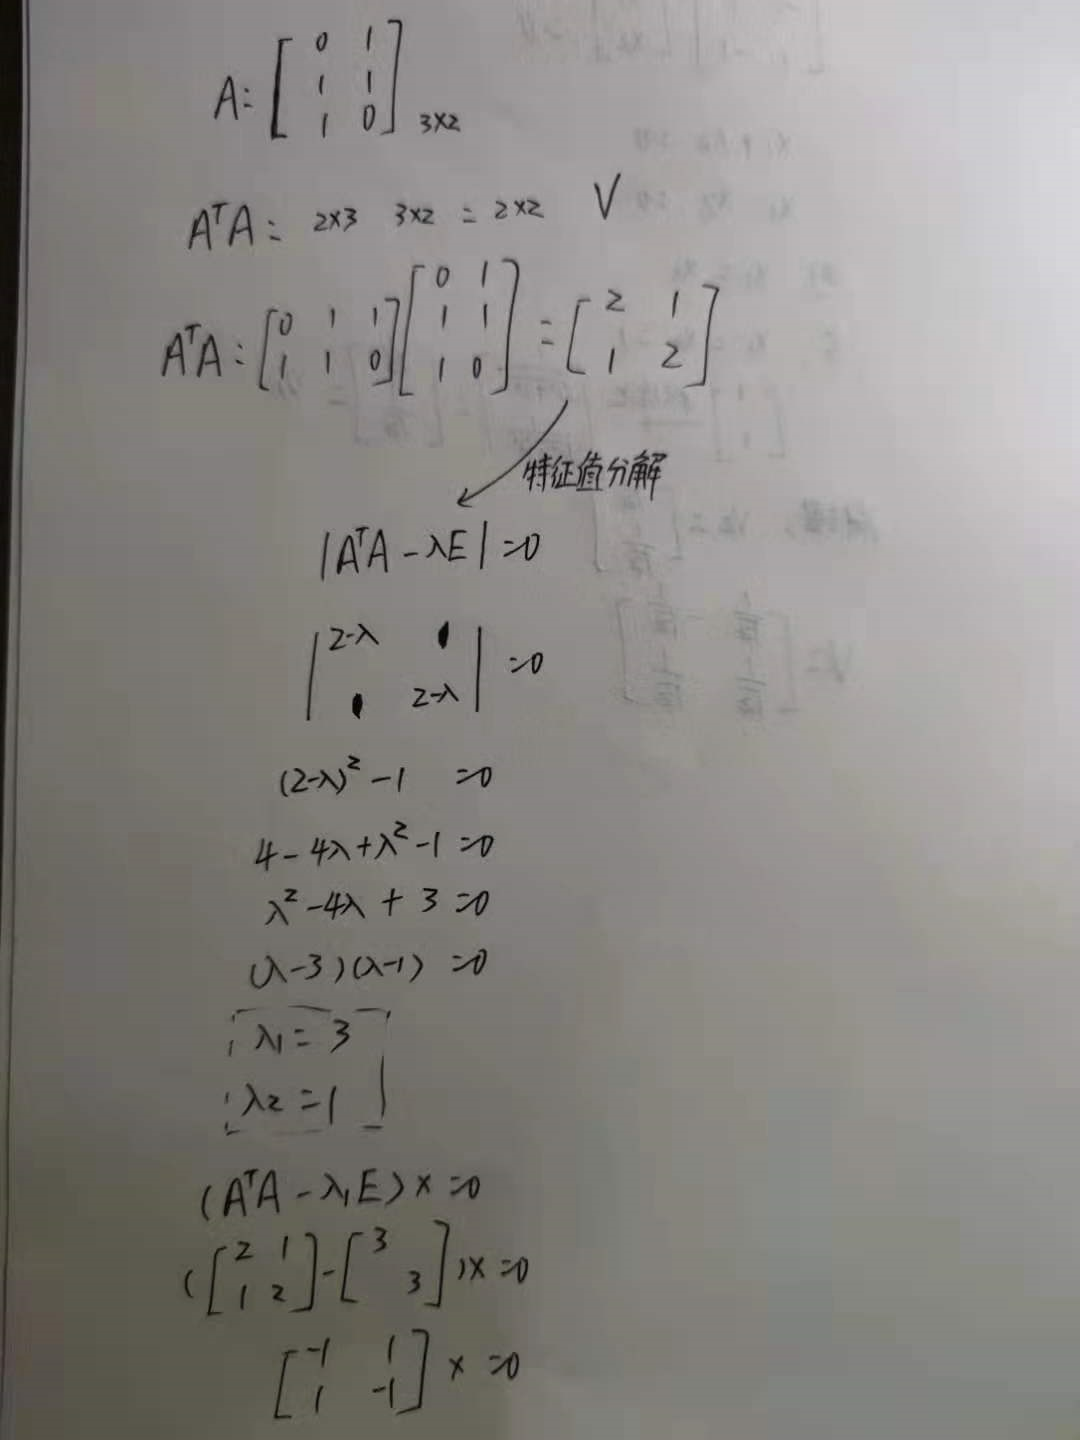 A: [0 1; 1 1; 1 0] 3×2
AᵀA = 2×3 3×2 = 2×2 V
AᵀA: [0 1 1; 1 1 0] [0 1; 1 1; 1 0] = [2 1; 1 2]
特征值分解
|AᵀA - λE| = 0
|2-λ 1; 1 2-λ| = 0
(2-λ)² - 1 = 0
4 - 4λ + λ² - 1 = 0
λ² - 4λ + 3 = 0
(λ-3)(λ-1) = 0
λ1 = 3
λ2 = 1
(AᵀA - λ1E)x = 0
([2 1; 1 2] - [3; 3])x = 0
[-1 1; 1 -1] x = 0